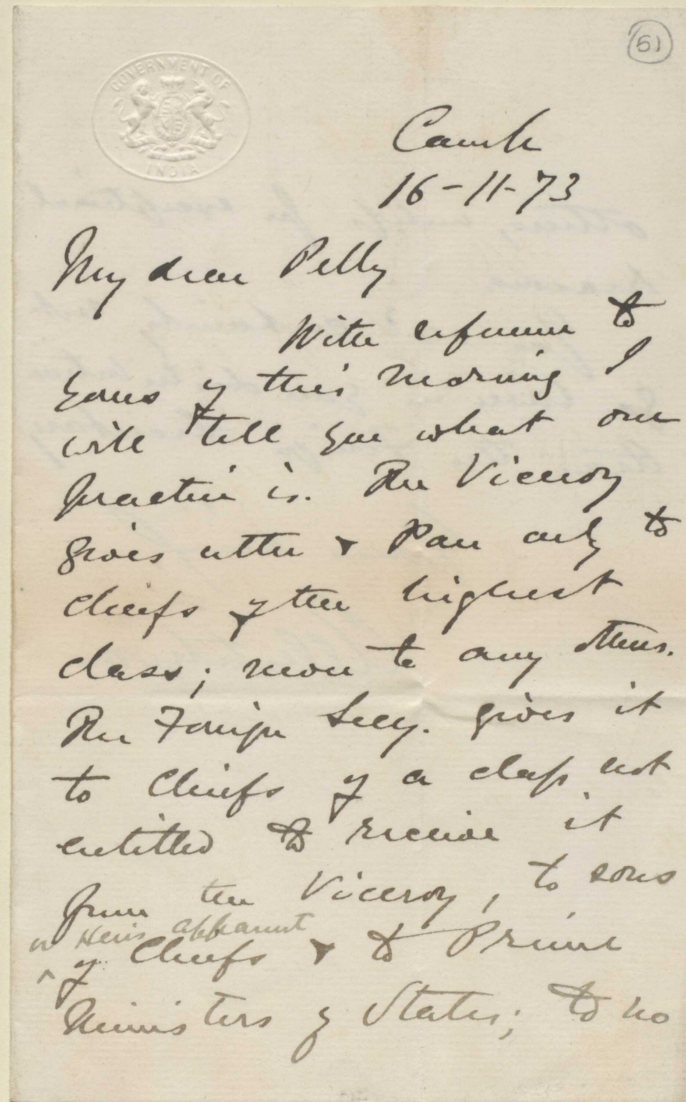 51
GOVERNMENT OF
INDIA
Camp
16-11-73
My dear Pelly
With reference to
yours of this morning I
will tell you what our
practice is. The Viceroy
gives utter & Pan only to
chiefs of the highest
class; never to any others.
The Foreign Secy. gives it
to Chiefs of a class not
entitled to receive it
from the Viceroy, to sons
or Heirs apparent
of Chiefs & to Prime
Ministers of States; to no